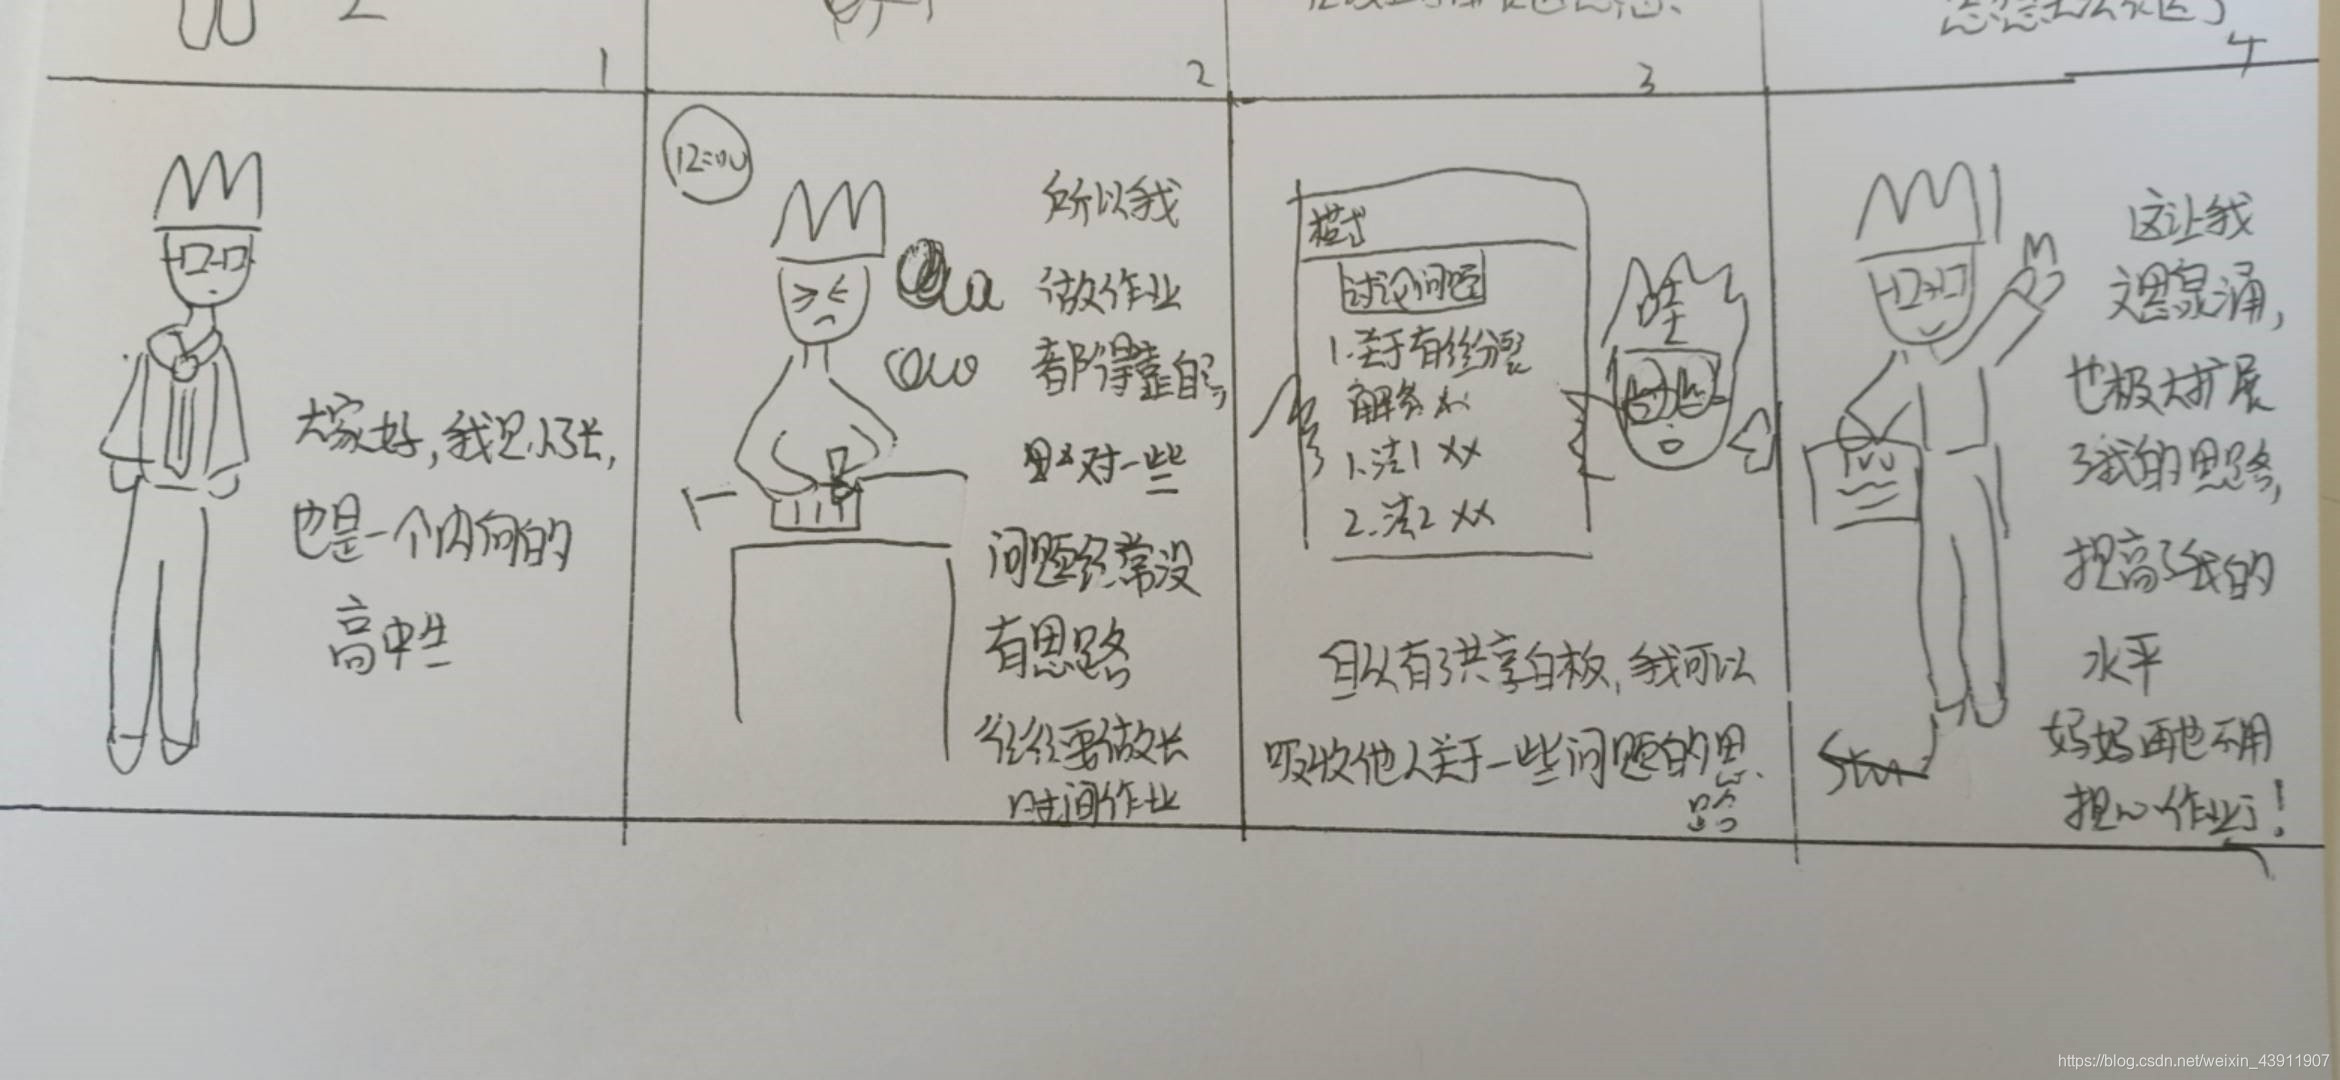 1
2
3
4
大家好，我是小张，
也是一个内向的
高中生
12:00
所以我
做作业
都得靠自己，
对一些
问题经常没
有思路
往往要做长
时间作业
讨论问题
1.关于有丝分裂
1.法1 XX
2.法2 XX
哇
但以有了共享白板，我可以
吸收他人关于一些问题的思
路
这让我
文思泉涌，
也极大扩展
了我的思路，
提高了我的
水平
妈妈再也不用
担心作业了！
https://blog.csdn.net/weixin_43911907